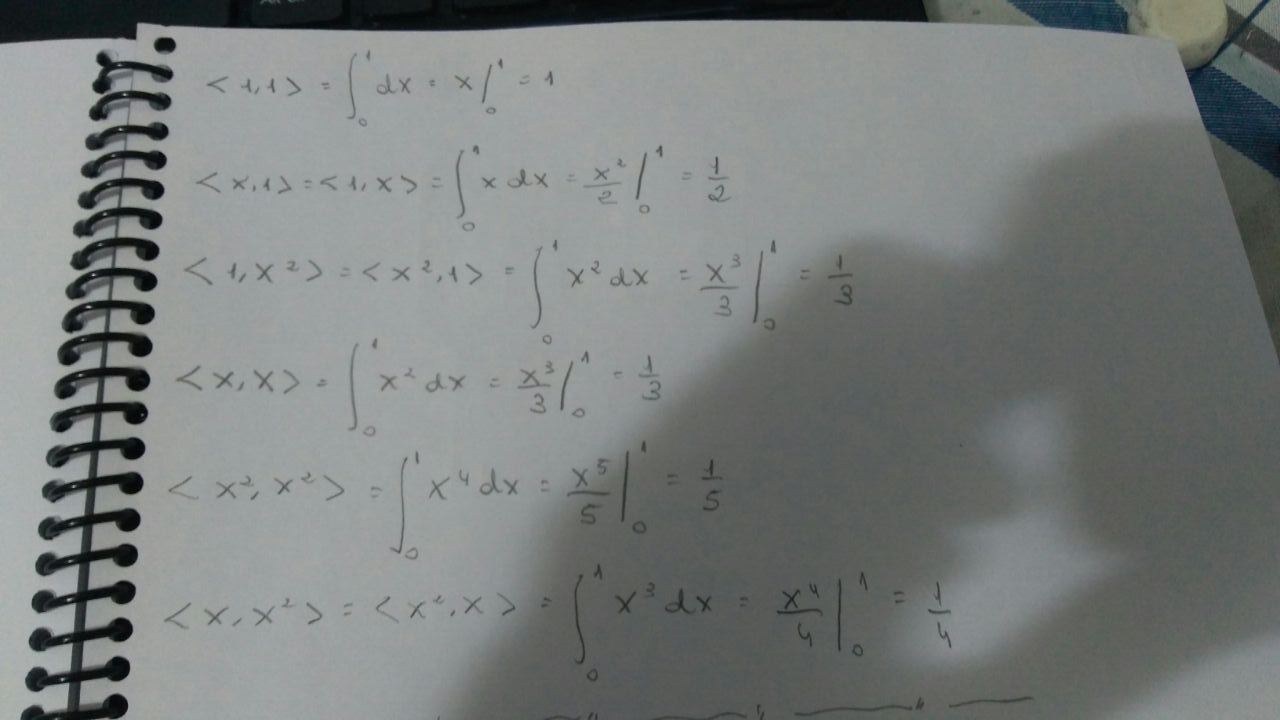 < 1,1 > = ∫₀¹ dx = x |₀¹ = 1
< x,1 > = < 1,x > = ∫₀¹ x dx = x²/2 |₀¹ = 1/2
< 1,x² > = < x²,1 > = ∫₀¹ x² dx = x³/3 |₀¹ = 1/3
< x,x > = ∫₀¹ x² dx = x³/3 |₀¹ = 1/3
< x²,x² > = ∫₀¹ x⁴ dx = x⁵/5 |₀¹ = 1/5
< x,x² > = < x²,x > = ∫₀¹ x³ dx = x⁴/4 |₀¹ = 1/4